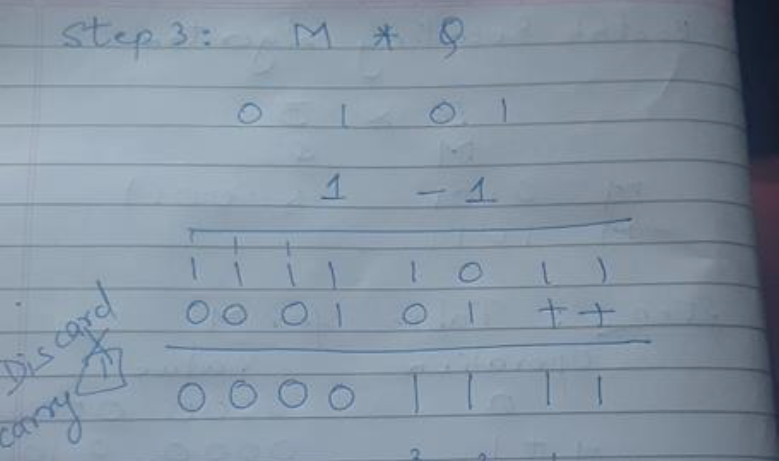 Step 3: M * Q
0 1 0 1
1 -1
1 1 1
1 1 1 1 1 0 1 1
0 0 0 1 0 1 + +
Discard carry 1 0 0 0 0 1 1 1 1